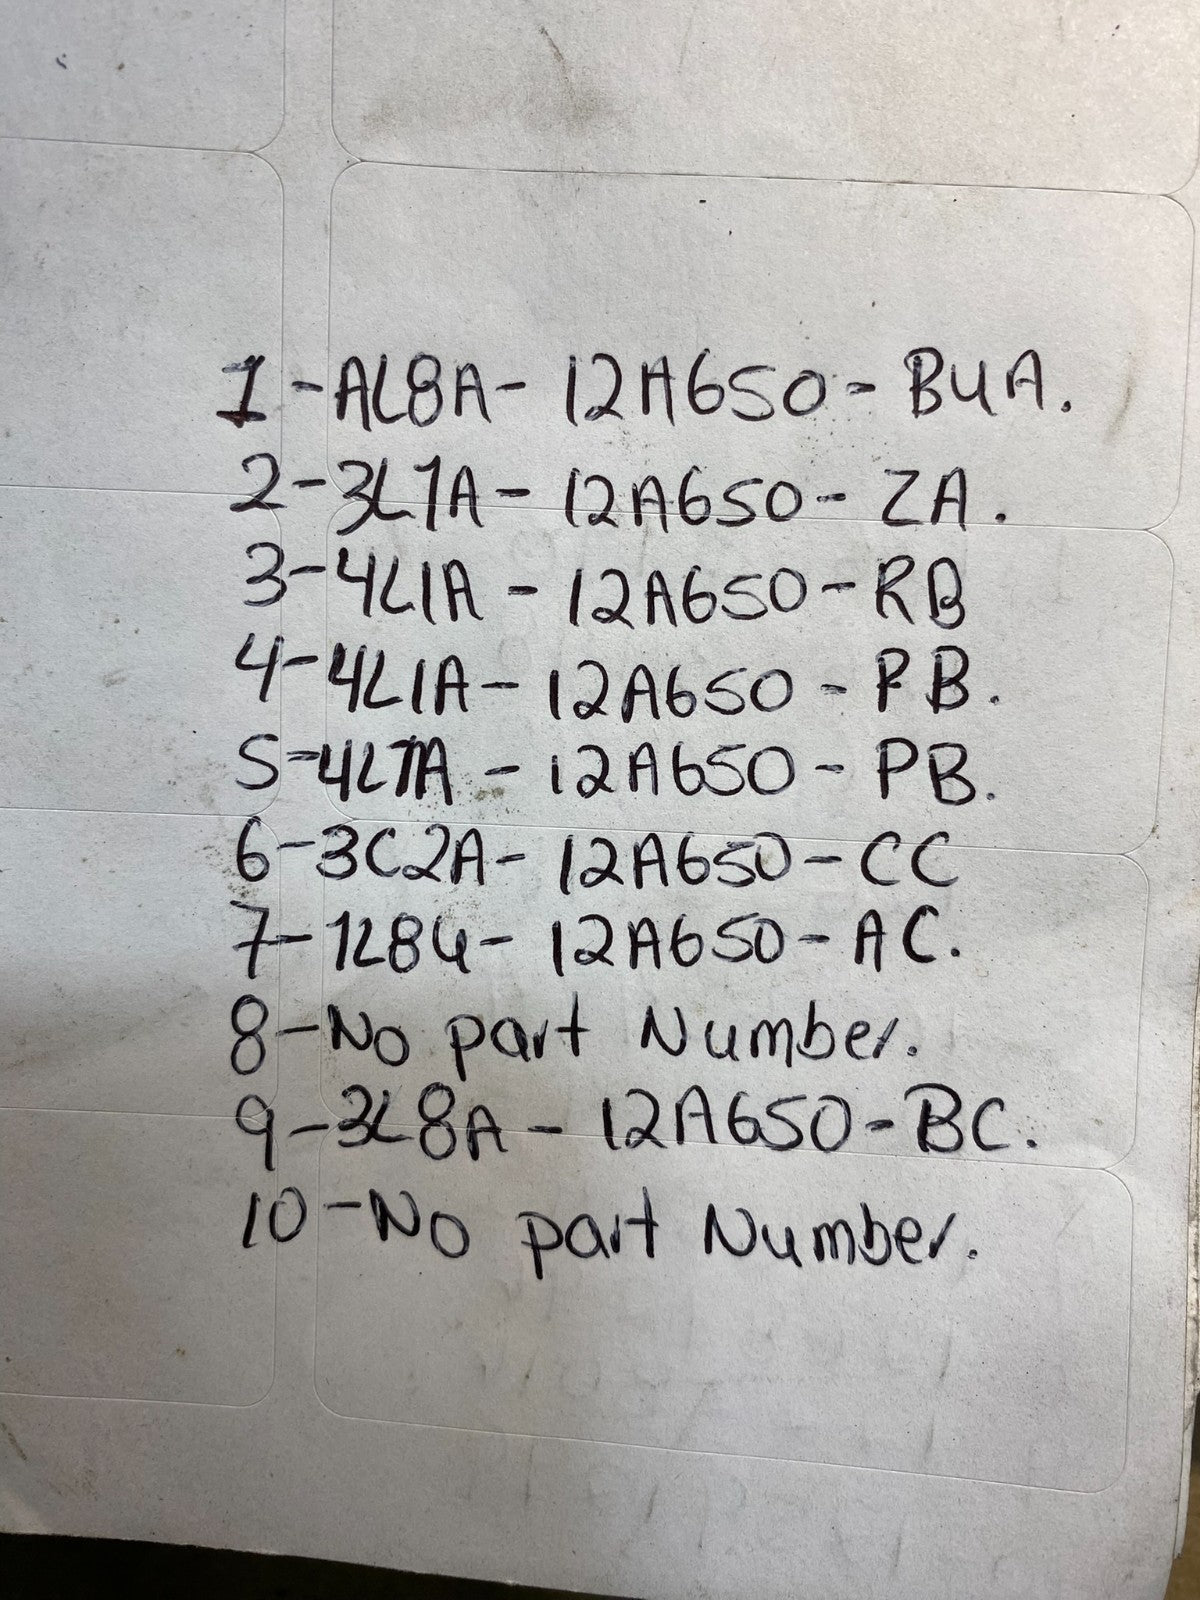 1-AL8A-12A650-BUA.
2-3L7A-12A650-ZA.
3-4L1A-12A650-RB
4-4L1A-12A650-PB.
5-4L7A-12A650-PB.
6-3C2A-12A650-CC
7-1L84-12A650-AC.
8-No part Number.
9-3L8A-12A650-BC.
10-No part Number.